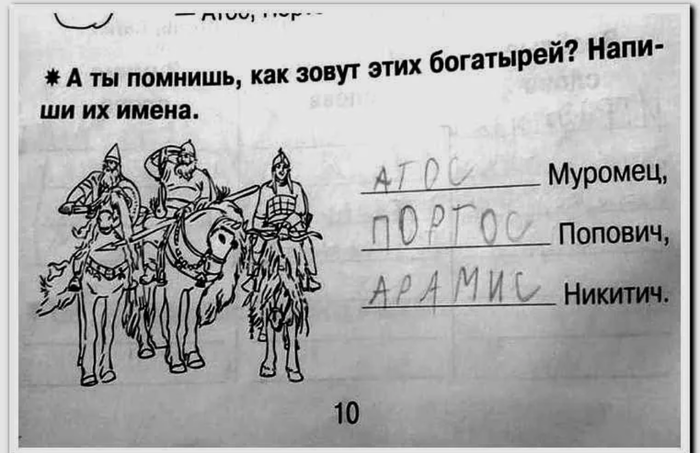 — Атос, Порто
✷ А ты помнишь, как зовут этих богатырей? Напи-
ши их имена.
АТОС Муромец,
ПОРТОС Попович,
АРАМИС Никитич.
10